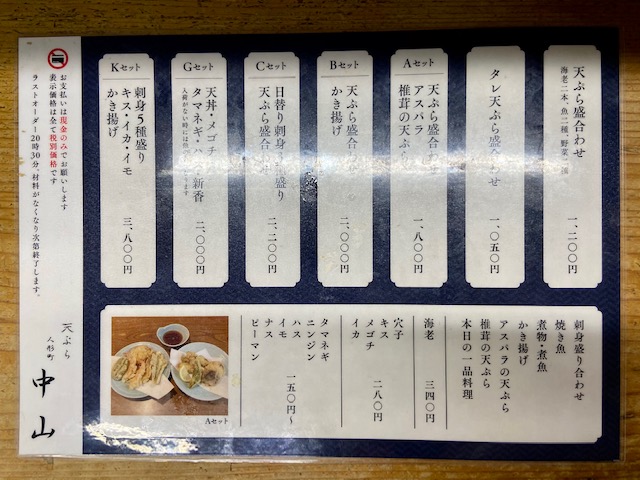 天ぷら盛合わせ
海老二本、魚二種、野菜
一、二〇〇円
タレ天ぷら盛合わせ
一、〇五〇円
Aセット
天ぷら盛合わせ
アスパラ
椎茸の天ぷら
一、八〇〇円
Bセット
天ぷら盛合わせ
かき揚げ
二、〇〇〇円
Cセット
日替り刺身 盛り
天ぷら盛合わせ
二、二〇〇円
Gセット
天丼・メゴチ
タマネギ・ハ 新香
二、〇〇〇円
Kセット
刺身5種盛り
キス・イカ・イモ
かき揚げ
三、八〇〇円
お支払いは現金のみでお願いします
表示価格は全て税別価格です
ラストオーダー20時30分、材料がなくなり次第終了します。
刺身盛り合わせ
焼き魚
煮物・煮魚
かき揚げ
アスパラの天ぷら
椎茸の天ぷら
本日の一品料理
海老
三四〇円
穴子
キス
メゴチ
イカ
二八〇円
タマネギ
ニンジン
ハス
イモ
ナス
ピーマン
一五〇円〜
Aセット
天ぷら
人形町
中山